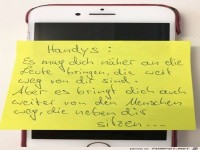 Handys:
Es mag dich näher an die
Leute bringen, die weit
weg von dir sind.
Aber es bringt dich auch
weiter von den Menschen
weg, die neben dir
sitzen...